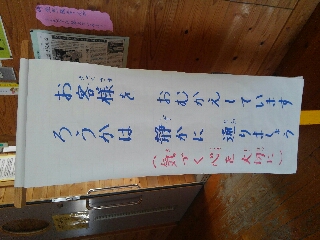 お客様を　おむかえしています
ろうかは　静かに　通りましょう
(気づく心を大切に)